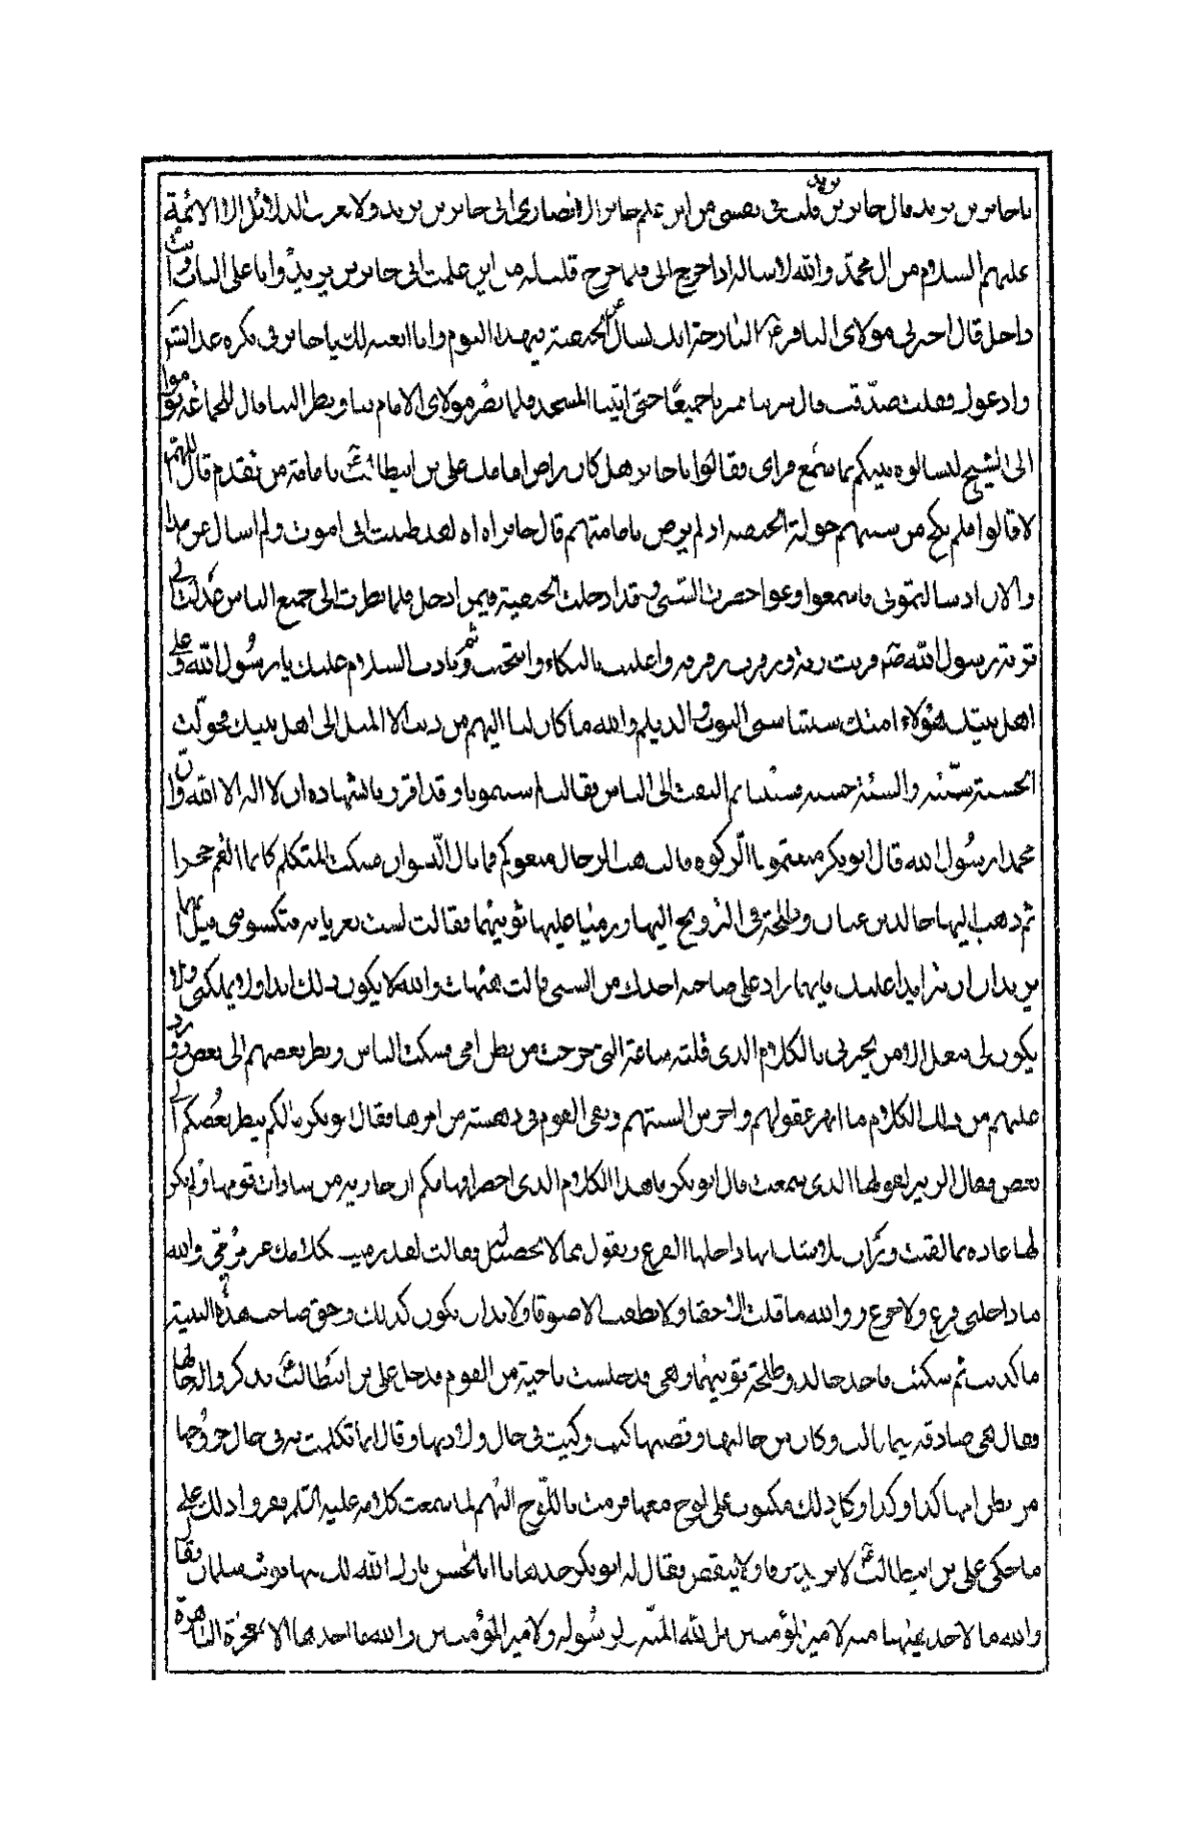 يا جابر بن يزيد قال جابر بن يزيد قلت في نفسي من اين علم جابر الانصاري اني جابر بن يزيد ولا يعرف الدلائل الا الائمة
عليهم السلام من ال محمد والله لاسالنه اذا خرج الي فلما خرج قلت له من اين علمت اني جابر بن يزيد وانا على الباب وانت
داخل قال اخبرني مولاى الباقر البارحة انك تسال عن الحنفية في هذا اليوم وانا ابعثه اليك يا جابر بكرة غد
وادعوك فقلت صدقت قال سر بنا فسرنا جميعا حتى اتينا المسجد فلما بصر مولاى الامام بنا ونظر الينا قال للجماعة قوموا
الى الشيخ فاسالوه ينبيكم بما سمع وراى فقالوا يا جابر هل كان راض امامك علي بن ابيطالب بامامة من تقدم قال اللهم
لا قالوا فلم نكح من سبيهم خولة الحنفية اذ لم يرض بامامتهم قال جابر اه اه لقد ظننت اني اموت ولم اسال عن هذا
والان اذ سالتموني فاسمعوا وعوا حضرت السبي وقد ادخلت الحنفية فيمن ادخل فلما نظرت الى جميع الناس عدلت الى
تربة رسول الله فرنت رنة وزفرت زفرة واعلنت بالبكاء والنحيب ثم نادت السلام عليك يا رسول الله وعلى
اهل بيتك هؤلاء امتك سبتنا سبي النوب والديلم والله ما كان لنا اليهم من ذنب الا الميل الى اهل بيتك فحولت
الحسنة سيئة والسيئة حسنة فسبينا ثم التفتت الى الناس فقالت لم سبيتمونا وقد اقررنا بشهادة ان لا اله الا الله وان
محمدا رسول الله قال ابو بكر منعتمونا الزكوة قالت هب الرجال منعوكم فما بال النسوان فسكت المتكلم كانما القم حجرا
ثم ذهب اليها خالد بن عنان وطلحة في التزويج اليها ورميا عليها ثوبيهما فقالت لست بعريانة فتكسوني قيل انهما
يريدان ان يتزايدا عليك فايهما زاد على صاحبه اخذك من السبي قالت هيهات والله لا يكون ذلك ابدا ولا يملكني ولا
يكون لي بعل الا من يخبرني بالكلام الذي قلته ساعة التي خرجت من بطن امي فسكت الناس ونظر بعضهم الى بعض وورد
عليهم من ذلك الكلام ما ابهر عقولهم واخرس السنتهم وبقي القوم في دهشة من امرها فقال ابو بكر ما لكم ينظر بعضكم الى
بعض فقال الزبير لقولها الذي سمعت قال ابو بكر ما هذا الكلام الذي احصر افهامكم ان جارية من سادات قومها ولم يكن
لها عادة بما لقيت ورات فلا شك انها داخلها الفزع وتقول بما لا تحصيل له فقالت لقد رميت بكلامك غير مرمى والله
ما داخلني فزع ولا جزع ووالله ما قلت الا حقا ولا نطقت الا صدقا ولا بد ان يكون كذلك وحق صاحب هذه البنية
ما كذبت ثم سكتت فاخذ خالد وطلحة ثوبيهما وهي قد جلست ناحية من القوم فدخل علي بن ابيطالب فذكروا له حالها
فقال هي صادقة فيما قالت وكان من حالتها وقصتها كيت وكيت في حال ولادتها وقال انما تكلمت به في حال خروجها
من بطن امها كذا وكذا وكل ذلك مكتوب على لوح معها فرمت باللوح اليهم لما سمعت كلامه عليه السلم فقروا ذلك على
ما حكى علي بن ابيطالب لا يزيد حرفا ولا ينقص فقال له ابو بكر خذها يا ابا الحسن بارك الله لك فيها فوثب سلمان فقال
والله ما لاحد هيهنا منة لامير المؤمنين بل لله المنة ولرسوله ولامير المؤمنين والله ما اخذها الا لمعجزة الباهرة